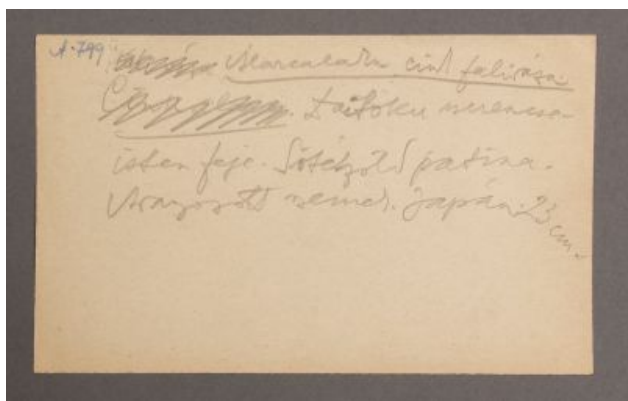 A·799 cink falirása
Daitoku szerencse-
isten feje. Sötétzöld patina.
Aranyozott szemek. Japán. 23 cm.